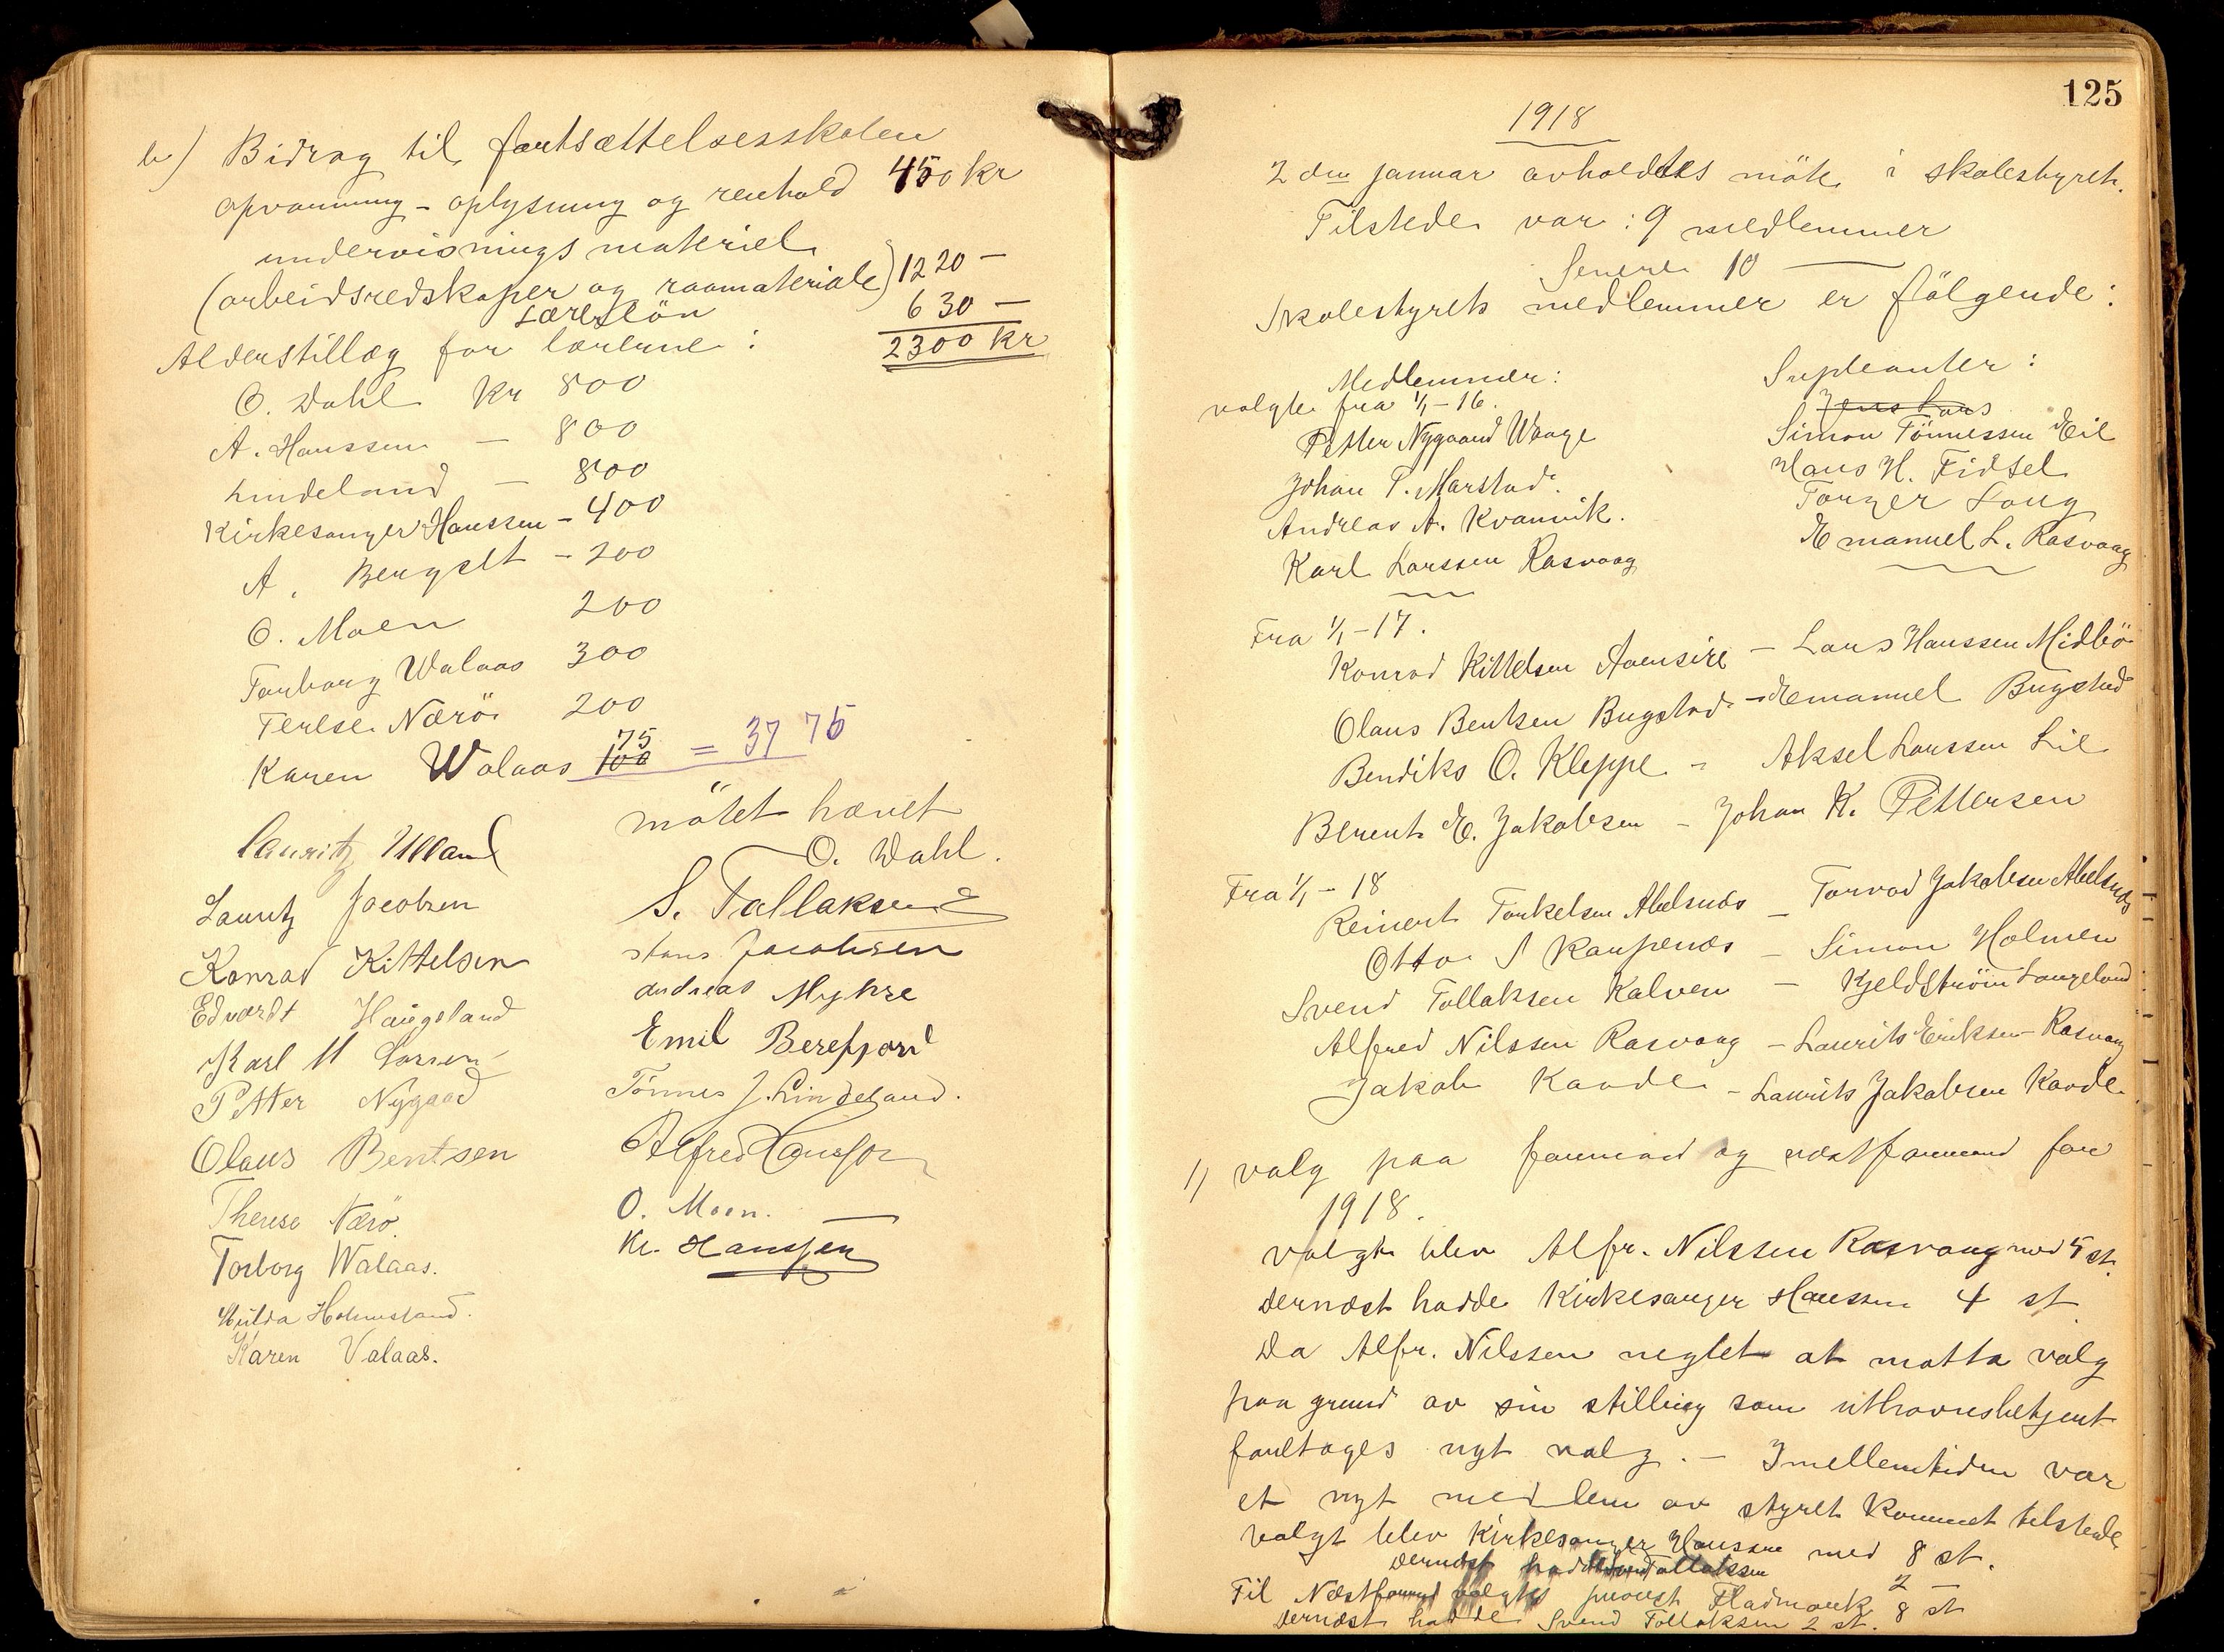 b) Bidrag til fortsættelsesskolen
opvarming - oplysning og renhold 450 kr
undervisnings materiel
(arbeidsredskaper og raamateriale) 1220 —
Lærerlön 630 —
2300 kr
Alderstillæg for lærerne:
O. Dahl Kr 800
A. Hanssen — 800
Lindeland — 800
Kirkesanger Hanssen - 400
A. Bergslt - 200
O. Moen 200
Torborg Walaas 300
Terese Nærö 200
Karen Walaas 100 75 = 37 75
mötet hævet
O. Dahl.
Lauritz Ulland
S. Tallaksen
Lauritz Jacobsen
Hans Jacobsen
Konrad Kittelsen
Andreas Myhre
Edvardt Haugeland
Emil Berefjord
Karl M Larsen
Tönnes J. Lindeland.
Petter Nygaad
Alfred Hanssen
Olaus Bentsen
O. Moen.
Therese Nærö.
Kr. Hanssen
Torborg Walaas.
Hulda Holmesland.
Karen Valaas.
125
1918
2den januar avholdtes möte i skolestyret.
Tilstede var: 9 medlemmer
Senere 10 —
Skolestyrets medlemmer er fölgende:
Medlemmer: Supleanter:
valgte fra 1/1 - 16. Jens Lars
Petter Nygaard Waage Simon Tönnessen Eil
Johan P. Marstad. Hans H. Fidsel
Andreas A. Kvanvik. Torger Loug
Karl Larssen Rasvaag Emanuel L. Rasvaag
Fra 1/1 - 17.
Konrad Kittelsen Aaensire - Lars Hanssen Midbö
Olaus Bentsen Bugstad - Emanuel Bugstad
Bendiks O. Kleppe - Aksel Larssen Lie
Berent E. Jakobsen - Johan K. Pettersen
Fra 1/1 - 18
Reinert Torkelsen Abelsnæs - Torvad Jakobsen Abelsnæs
Otto S Kaupenæs - Simon Holmen
Svend Tollaksen Kalven - Kjeldström Langeland
Alfred Nilssen Rasvaag - Laurits Eriksen Rasvaag
Jakob Kavde - Laurits Jakobsen Kavde
1) valg paa formand og næstformand for
1918.
valgt blev Alfr. Nilssen Rasvaag med 5 st.
Dernæst hadde Kirkesanger Hanssen 4 st
Da Alfr. Nilssen neglet at motta valg
paa grund av sin stilling som uthavnsbetjent
foretages nyt valg. - Imellemtiden var
et nyt medlem av styret kommet tilstede
valgt blev Kirkesanger Hanssen med 8 st.
Dernæst hadde Svend Tollaksen 2 —
Til Næstformand valgtes provst Fladmark 8 st
Dernæst hadde Svend Tollaksen 2 st.